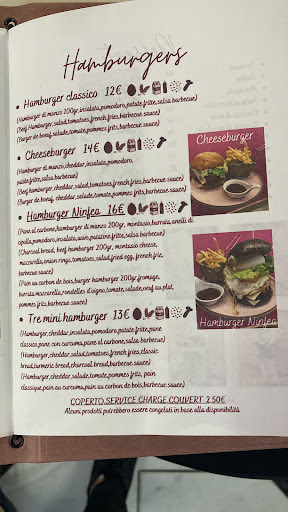 Hamburgers
• Hamburger classico 12€
(Hamburger di manzo 200gr,insalata,pomodoro,patate fritte,salsa barbecue)
(Beef Hamburger,salad,tomatoes,french fries,barbecue sauce)
(Burger de boeuf,salade,tomate,pommes frits,barbecue sauce)
• Cheeseburger 14€
(Hamburger di manzo,cheddar,insalata,pomodoro,
patate fritte,salsa barbecue)
(Beef hamburger,cheddar,salad,tomatoes,french fries,barbecue sauce)
(Burger de boeuf, cheddar,salade,tomate,pommes frits,barbecue sauce)
Cheeseburger
• Hamburger Ninfea 16€
(Pane al carbone,hamburger di manzo 200gr, montasio,burrata,anelli di
cipolla,pomodoro,insalata,uovo,patatine fritte,salsa barbecue)
(Charcoal bread, beef hamburger 200gr, montasio cheese,
mozzarella,onion rings,tomatoes,salad,fried egg, french frie,
barbecue sauce)
(Pain au carbon de bois,burger hamburger 200gr,fromage,
burrata mozzarella,rundelles d'oigno,tomate,salade,oeuf au plat,
pommes frits,barbecue sauce)
Hamburger Ninfea
• Tre mini hamburger 13€
(Hamburger,cheddar,insalata,pomodoro,patate fritte,pane
classico,pane con curcuma,pane al carbone,salsa barbecue)
(Hamburger,cheddar,salad,tomatoes,french fries,classic
bread,turmeric bread,charcoal bread,barbecue sauce)
(Hamburger,cheddar,salade,tomate,pommes frits, pain
classique,pain au curcuma,pain au carbon de bois,barbecue sauce)
COPERTO,SERVICE CHARGE,COUVERT 2.50€
Alcuni prodotti potrebbero essere congelati in base alla disponibilità